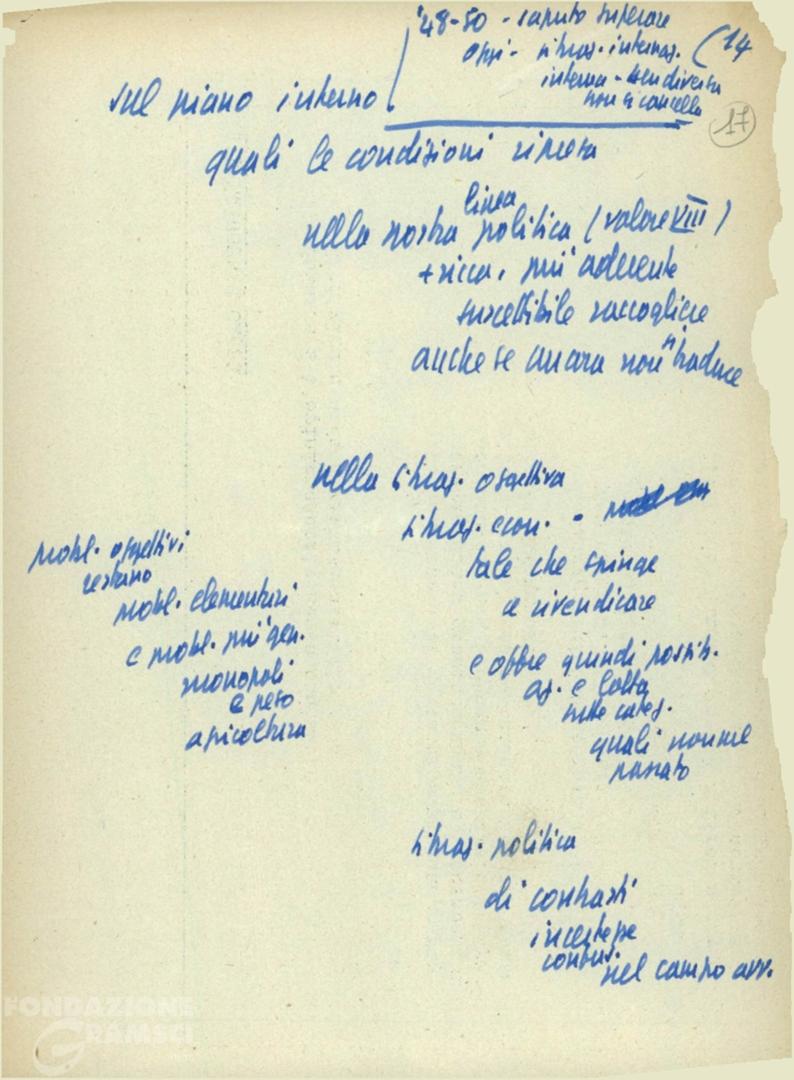 '48-50 - saputo superare
oggi - situaz. internaz.
interna - ben diversa
non si cancella
(14
17
sul piano interno
quali le condizioni ripresa
nella nostra linea politica (valore VIII)
+ ricca, più aderente
suscettibile raccogliere
anche se ancora non si traduce
nella situaz. oggettiva
situaz. econ. -
tale che spinge
a rivendicare
e offre quindi possib.
az. e lotta
tutte categ.
quali non nel
passato
probl. oggettivi
restano
probl. elementari
e probl. più gen.
monopoli
e peso
agricoltura
situaz. politica
di contrasti
incertezze
confus.
nel campo avv.
FONDAZIONE
GRAMSCI